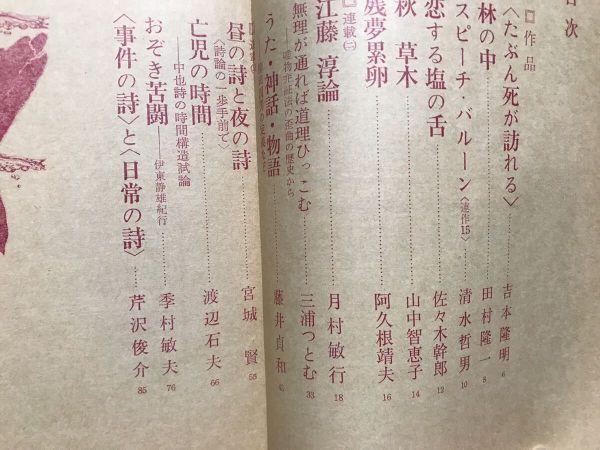 目次
□作品
〈たぶん死が訪れる〉 吉本隆明 6
林の中 田村隆一 8
スピーチ・バルーン〈連作15〉 清水哲男 10
恋する塩の舌 佐々木幹郎 12
秋 草木 山中智恵子 14
残夢累卵 阿久根靖夫 16
連載㈡
江藤淳論 月村敏行 18
無理が通れば道理ひっこむ 三浦つとむ 33
唯物弁証法の歪曲の歴史から
うた・神話・物語 藤井貞和
昼の詩と夜の詩 宮城賢 58
〈詩論の一歩手前で〉
亡児の時間 渡辺石夫 66
中也詩の時間構造試論
おぞき苦闘 季村敏夫 76
伊東静雄紀行
〈事件の詩〉と〈日常の詩〉 芹沢俊介 85